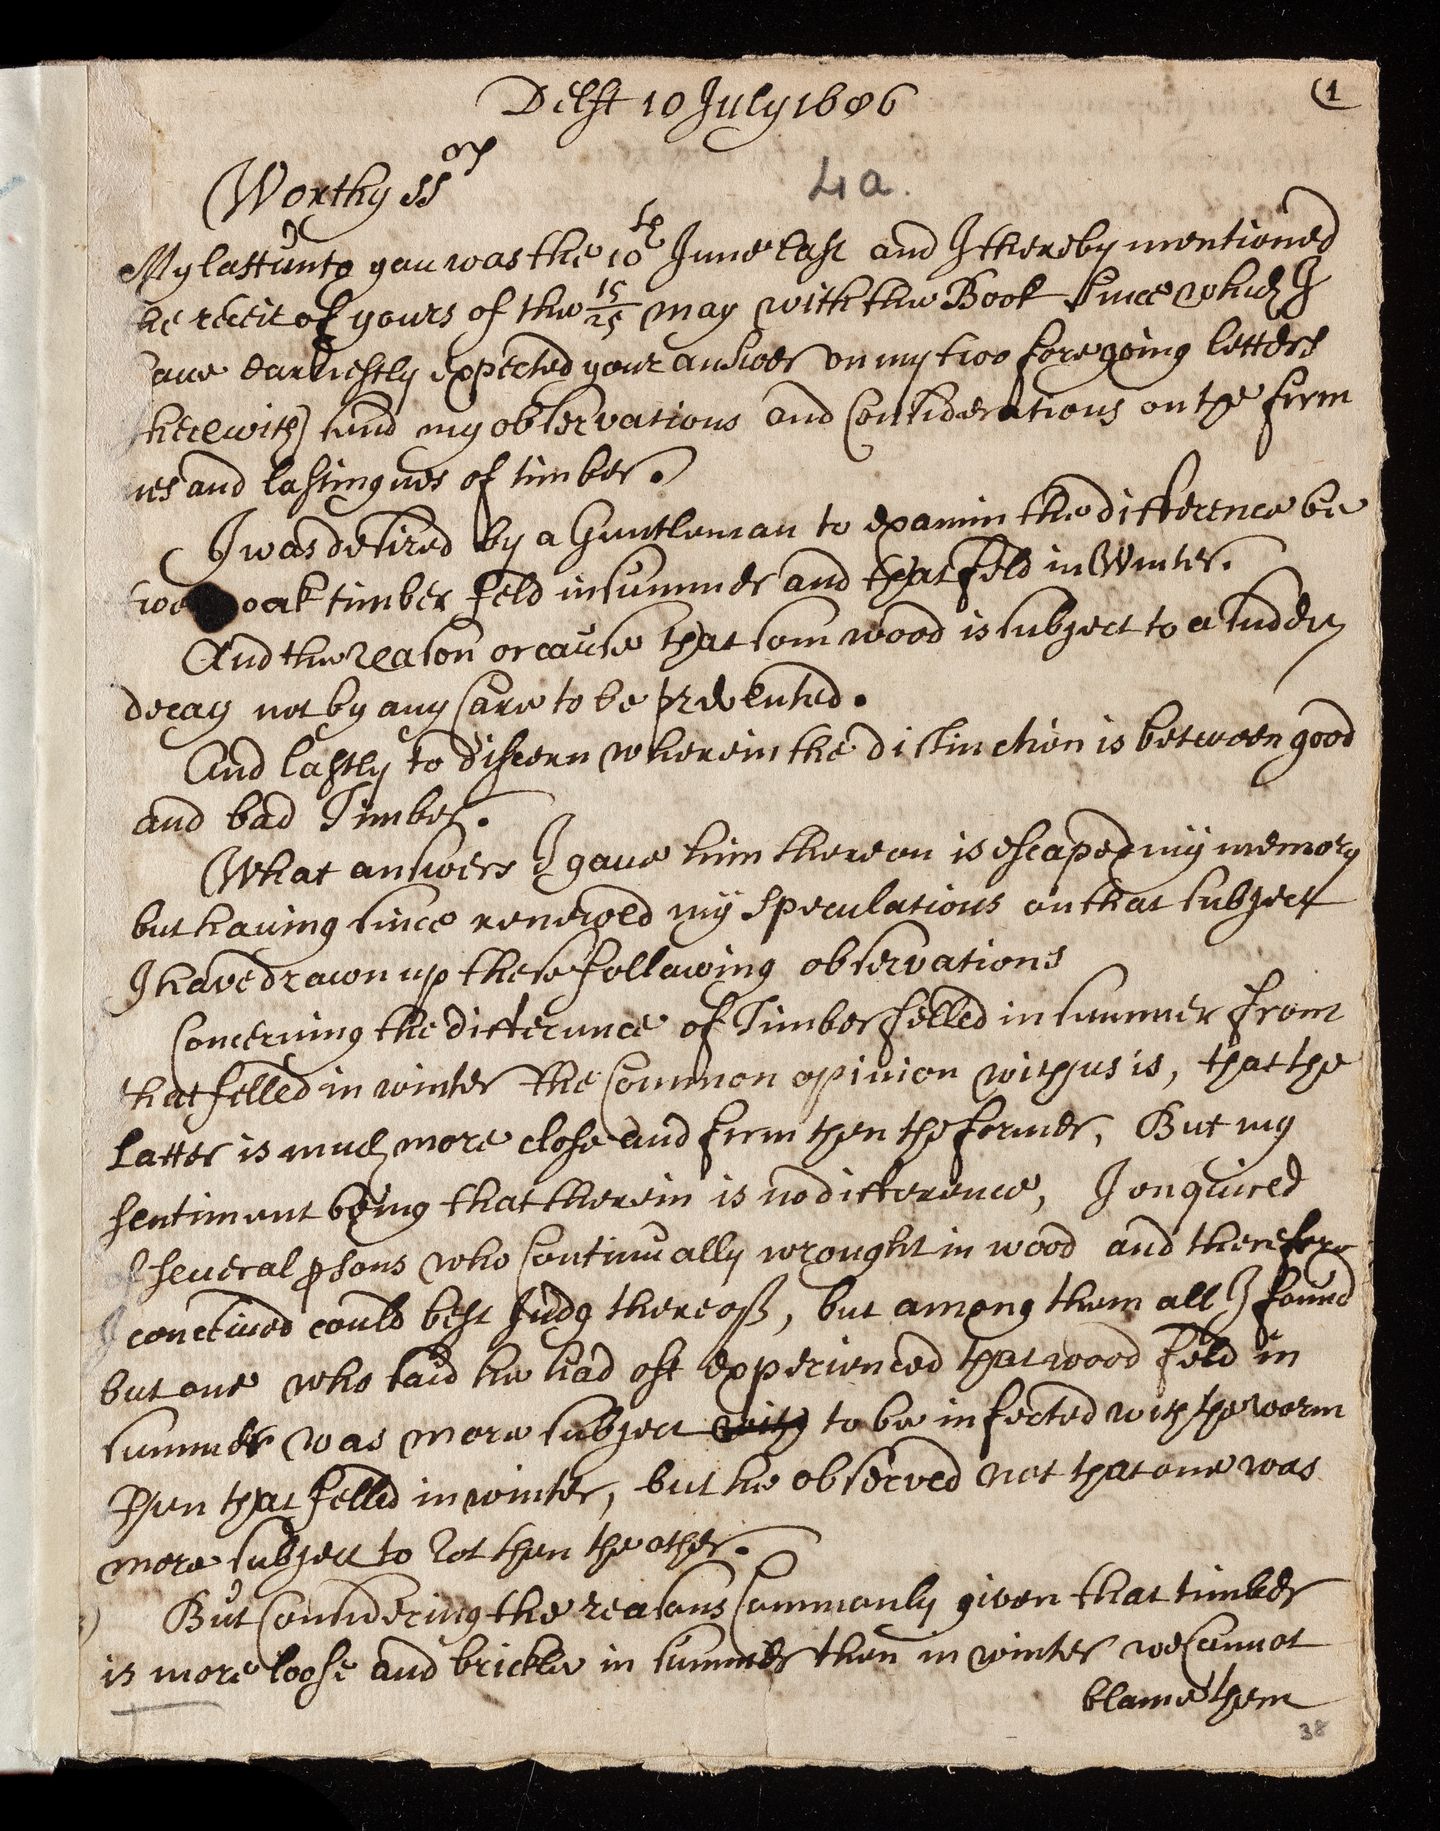 Delft 10 July 1686
(1
Worthy SS^or
4a.
My last unto you was the 10th June last and I thereby mentioned
he receit of yours of the 15/25 may with the Book since which I
ave earnestly expected your answer on my two foregoing letters
herewith send my observations and Considerations on the firm
nes and lastingnes of timber.
I was desired by a Gentleman to examin the difference be
twe oak timber feld in summer and that feld in Winter.
And the reason or cause that som wood is subject to a sudden
decay not by any Care to be prevented.
And lastly to discern wherein the distinction is between good
and bad Timber.
What answers I gave him thereon is escaped my memory
but having since renewed my speculations on that subject
I have drawn up these following observations
Concerning the difference of Timber felled in summer from
that felled in winter the Common opinion with us is, that the
latter is much more close and firm then the former, But my
sentiment being that therein is no difference, I enquired
of several psons who Continually wrought in wood and therefore
I conceived could best Judg thereoff, but among them all I found
but one who said he had oft experienced that wood feld in
summer was more subject with to be infected with the worm
then that felled in winter, but he observed not that one was
more subject to rot then the other.
But Considering the reasons Commonly given that timber
is more loose and brickle in summer then in winter we Cannot
blame them
38